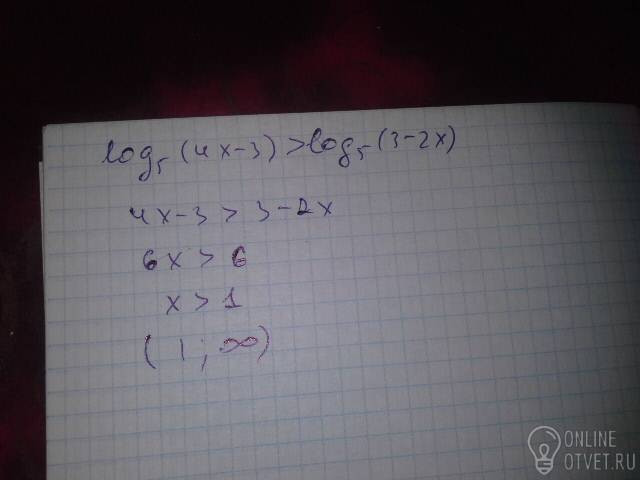 log₅(4x-3)>log₅(3-2x)
4x-3 > 3-2x
6x > 6
x > 1
( 1 ; ∞)
ONLINE
OTVET.RU